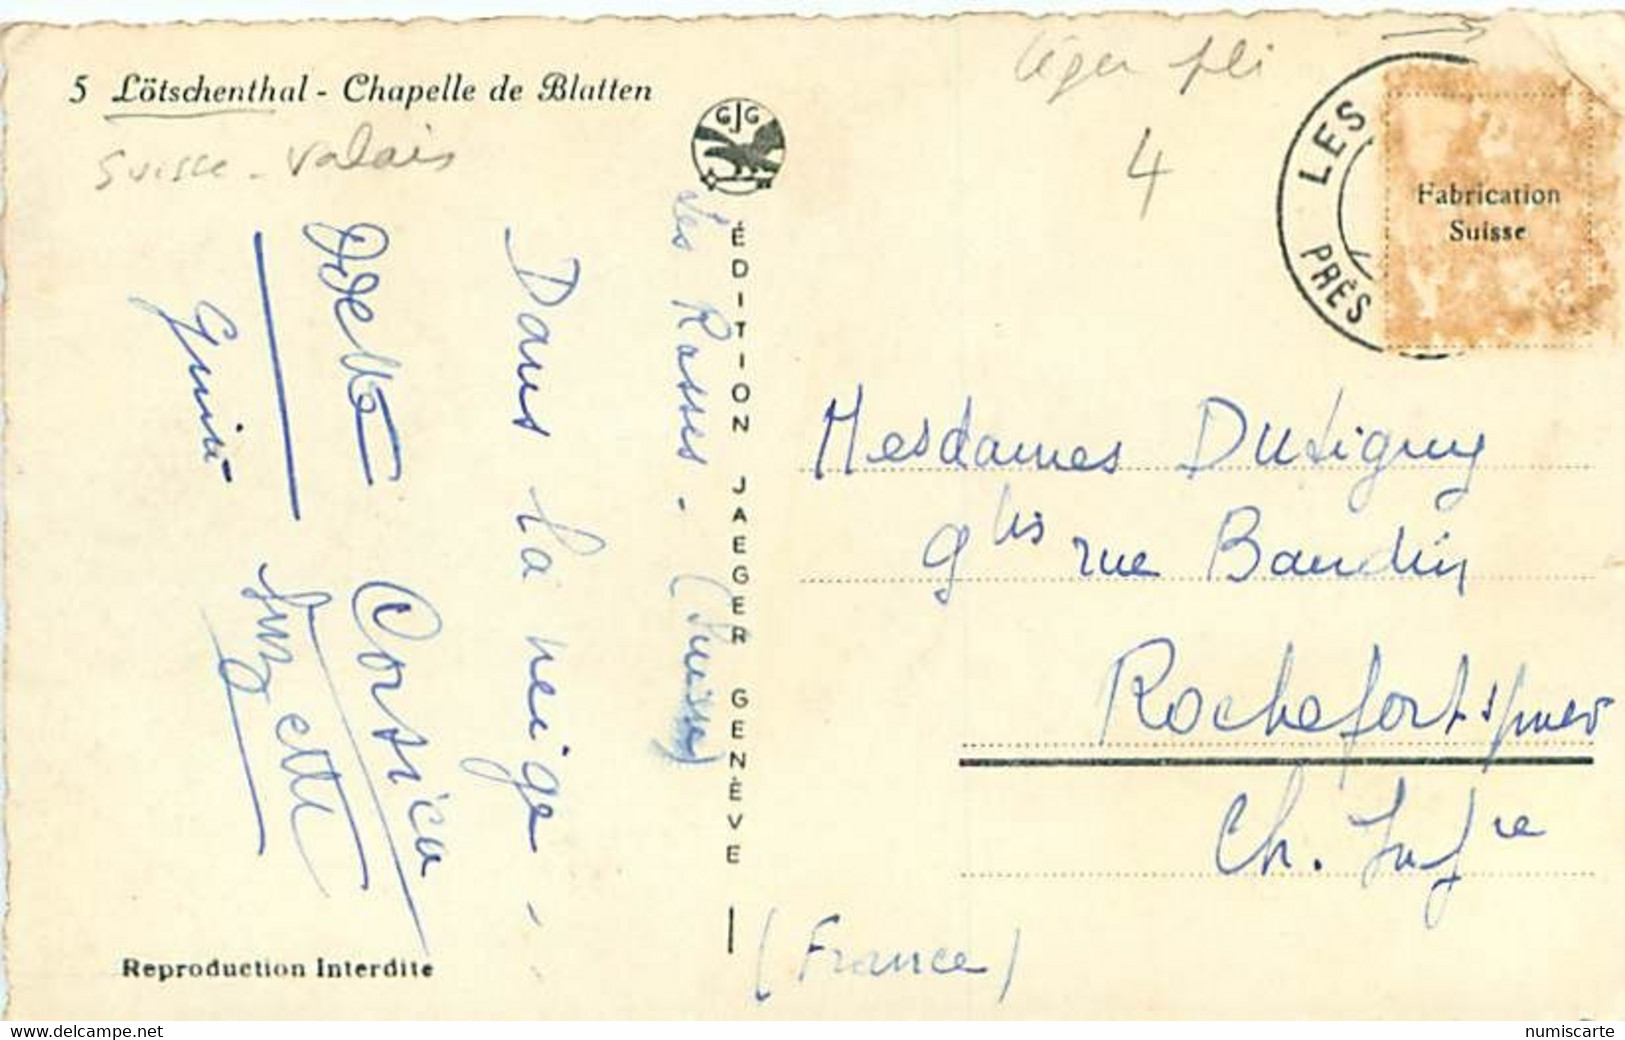 5 Lötschenthal - Chapelle de Blatten
Suisse - Valais
léger pli
4
GJG
LES
PRÈS
Fabrication
Suisse
ÉDITION JAEGER GENÈVE
Les Rasses - (Suisse)
Dans la neige -
Odette Corsica
Suzette
Mesdames Dutigny
9 bis rue Baudin
Rochefort s/mer
Ch. Infre
(France)
Reproduction Interdite
numiscarte
www.delcampe.net